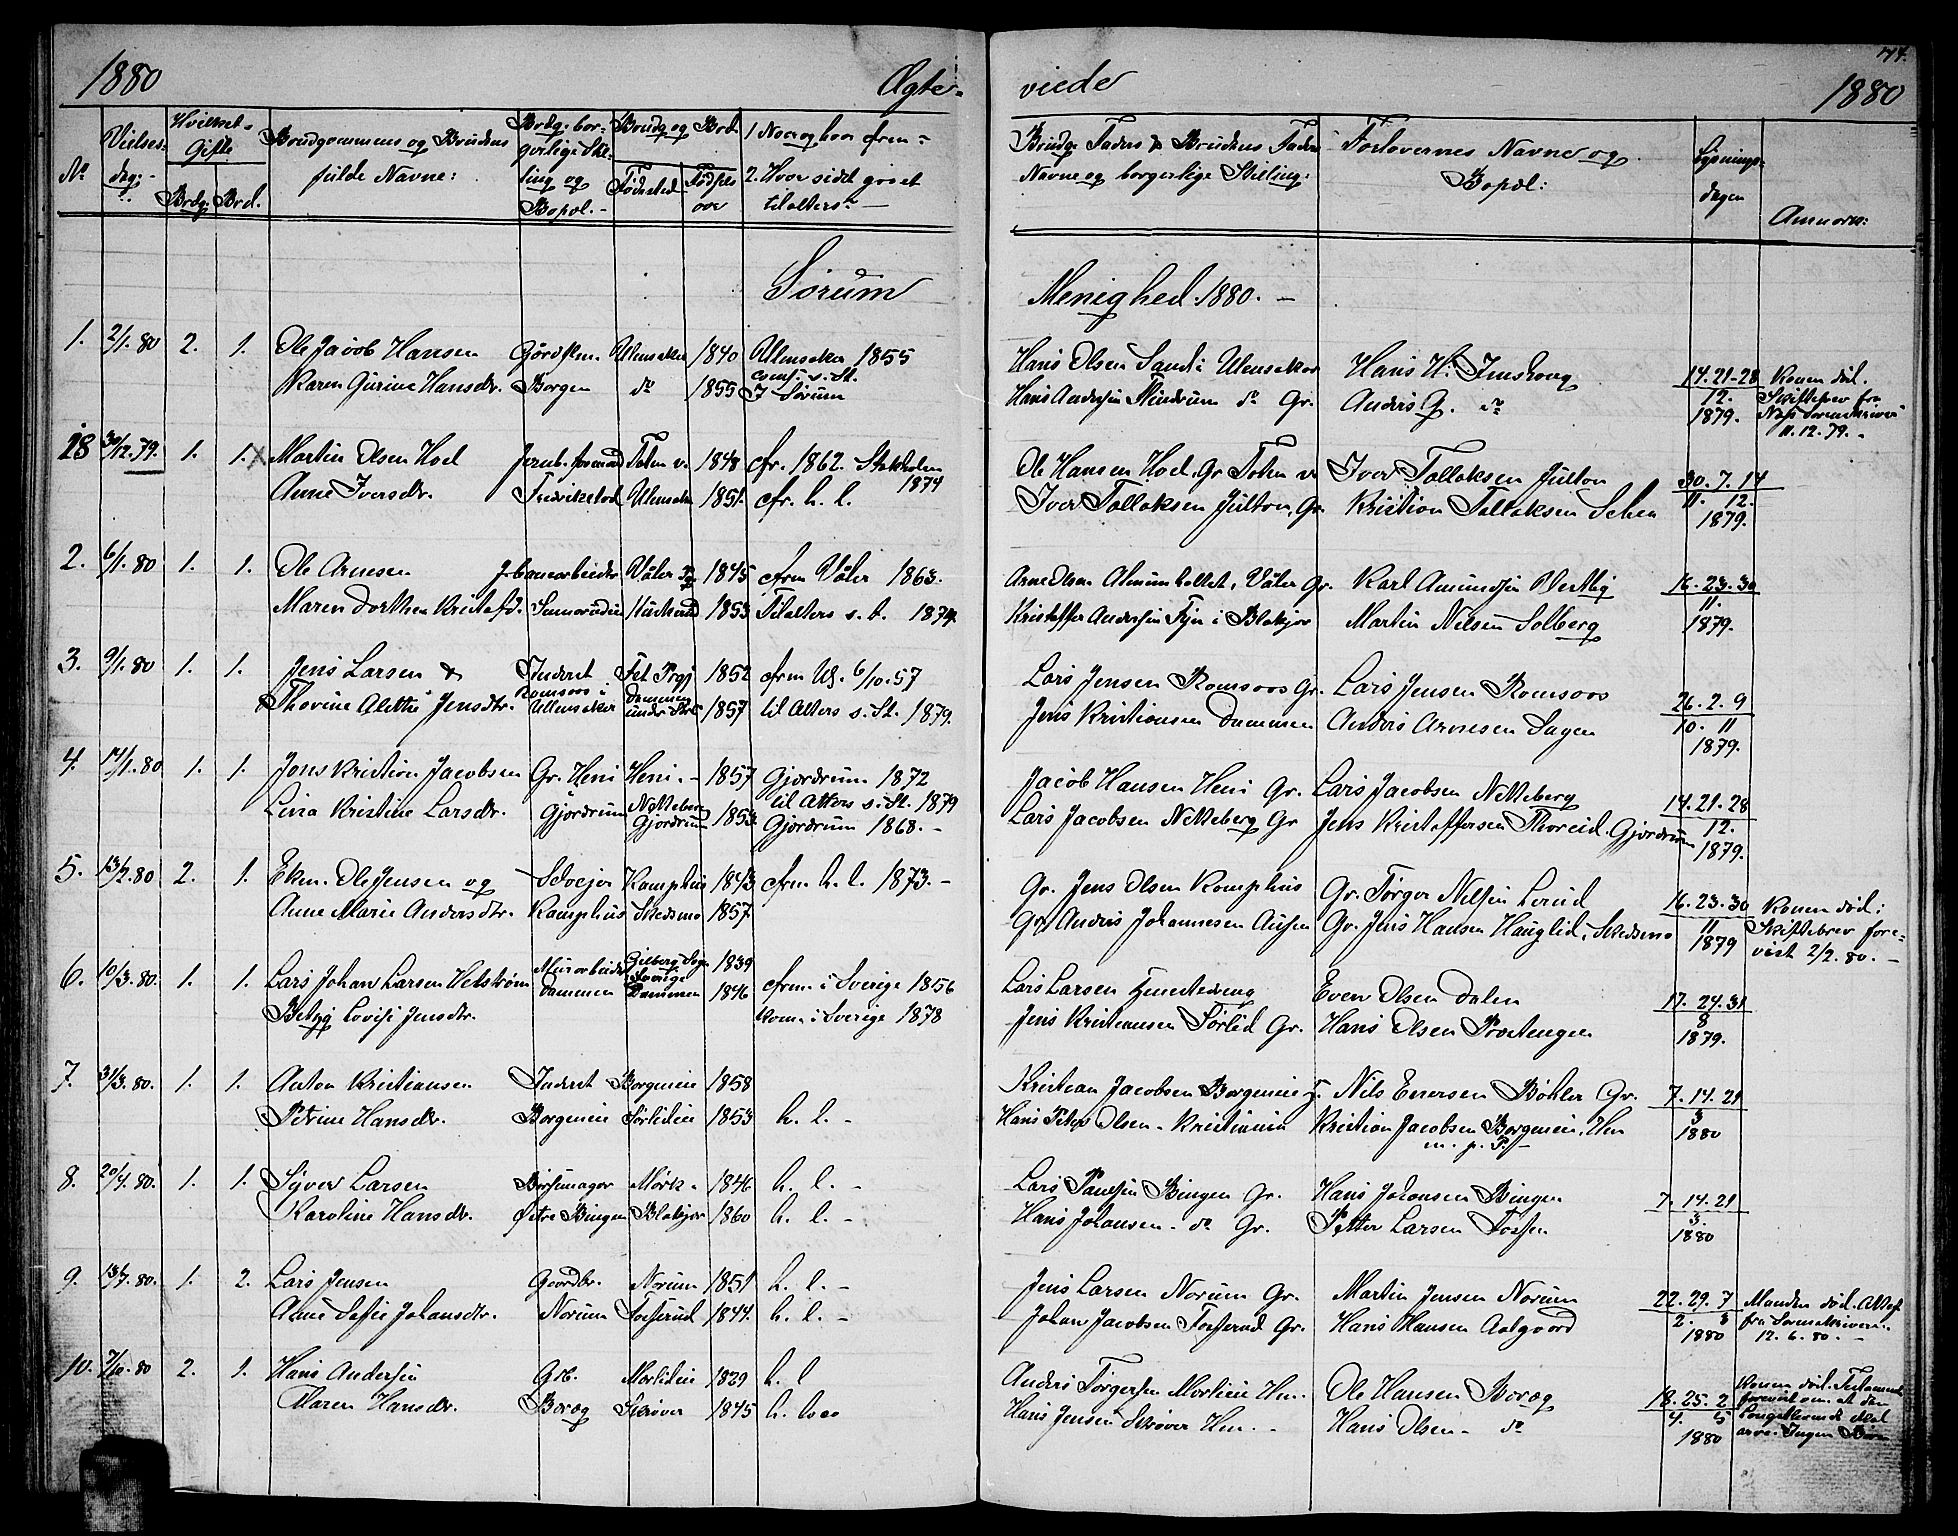 1880 Ægte-
viede 1880
No Vielses- dag: Hvilket Gifte. Brdg. Brd. Brudgommens og Brudens fulde Navne: Brdg. borgerlige Stilling og Bopæl. Brudg og Brd. Fødested Fødselsaar 1 Naar og hvor cfrm- 2. Hvor sidst gaaet til alters.
Brudg. Faders & Brudens Faders Navne og borgerlige Stilling: Forlovernes Navne og Bopæl: Lysnings- dagen Anmærk:
Sørum
Menighed 1880.
1. 2/1. 80 2. 1. Ole Jacob Hansen Gårdsm. Ullensaker 1840 Ullensaker 1855
Karen Gurine Hansdr. Borgen do 1855 I Sørum
Hans Olsen Sand i Ullensaker Hans H. 14. 21-28 Konen død.
Hans Andersen do Gr. Anders G. do 12. Skiftebrev fra
1879. 11.12.79.
18 30/12. 79. 1. 1. X Martin Olsen Hoel Jernb. formand Toten v. 1848 cfr. 1862. Stokholm
Anne Iversdr. Fredrikstad Ullensaker 1851. cfr. h. l. 1874
Ole Hansen Hoel. Gr Toten v. Iver Tollaksen Jülton 30. 7. 14
Iver Tollaksen Jülton, Gr. Kristian Tollaksen 11. 12.
1879.
2. 6/1. 80 1. 1. Ole Arnesen J. banearbeider Våler 1845 cfrm Våler 1863.
Maren Dorthea Kristofd. 1853 Til alters s. t. 1874.
Arne Olsen Våler Gr. Karl Amundsen Vestby 16. 23. 30
Kristoffer Andersen i Blakjer Martin Nilsen Solberg 11.
1879.
3. 9/1. 80 1. 1. Jens Larsen & Inderst Fet Prgj 1852 cfrm Us. 6/10. 57
Thorine Alette Jensdtr. Romsaas i Ullensaker Dammen under 1857 til Alters s. St. 1879.
Lars Jensen Romsaas Gr. Lars Jensen Romsaas 26. 2. 9
Jens Kristiansen Dammen Anders Arnesen Sagen 10. 11
1879.
4. 14/1. 80 1. 1. Jens Kristian Jacobsen Gr. Heni Heni. 1857 Gjerdrum 1872
Lina Kristine Larsdr. Gjerdrum Nekkeberg Gjerdrum 1853 til Alters s. St. 1879
Gjerdrum 1868.
Jacob Hansen Heni Gr. Lars Jacobsen Nekkeberg 14. 21. 28
Lars Jacobsen Nekkeberg Gr Jens Kristoffersen Thoreid. Gjerdrum 12.
1879.
5. 13/2. 80 2. 1. Ekm. Ole Jensen og Selveier Kamphus 1843 cfrm h. l. 1873.
Anne Marie Andersdtr. Kamphus Skedsmo 1857.
Gr. Jens Olsen Kamphus Gr. Torger Nilsen Lerud 16. 23. 30 Konen død:
Gr. Anders Johannesen Gr. Jens Hansen Hauglid, Skedsmo 11 Skiftebrev fore-
1879 vist 2/2. 80.
6. 10/3. 80. 1. 1. Lars Johan Larsen Helstrøm Murarbeider Gilberg Sogn Sverige 1839 cfrm i Sverige 1856
Betzy Lovise Jensdtr. Dammen Dammen 1846 kom. i Sverige 1878
Lars Larsen Even Olsen Dalen 17. 24. 31
Jens Kristiansen Sørlid Gr. Hans Olsen 8
1879.
7. 31/3. 80. 1. 1. Anton Kristiansen Inderst Borgeneie 1858
Petrine Hansdr. Borgeneie Sørlideie 1853 h. l.
Kristian Jacobsen Borgeneie Nils Enersen Böhler Gr. 7. 14. 21
Hans Peter Olsen. Kristiania Kristian Jacobsen Borgeneie, Hm 3
m. p. P. 1880
8. 20/4. 80. 1. 1. Syver Larsen Mørk. 1846 h. l.
Karoline Hansdr. Østre Bingen Blakjer 1860 h. l.
Lars Paulsen Bingen Gr. Hans Johansen Bingen 7. 14. 21
Hans Johansen. do Gr. Petter Larsen 3.
1880
9. 13/7. 80. 1. 2. Lars Jensen Gaardbr. Norum 1851 h. l.
Anne Sofie Johansdtr. Norum Fosserud 1844. h. l.
Jens Larsen Norum Gr. Martin Jensen Norum 22. 29. 7 Manden død. Attest
Johan Jacobsen Fosserud Gr. Hans Hansen Aalgaard 2. 3 fra Sorenskriveren
1880 12. 6. 80.
10. 2. 1. Hans Andersen Grb. Morlideie 1829 h. l
Maren Hansdr. Boræg Skrøver 1845 h. loco
Anders Torgersen Hm. Ole Hansen Boræg 18. 25. 2 Konen død. Testament
Hans Jensen Skrøver Hm. Hans Olsen. do 4. 5 forevist om at den
1880 Længstlevende skal
arve. Ingen Børn